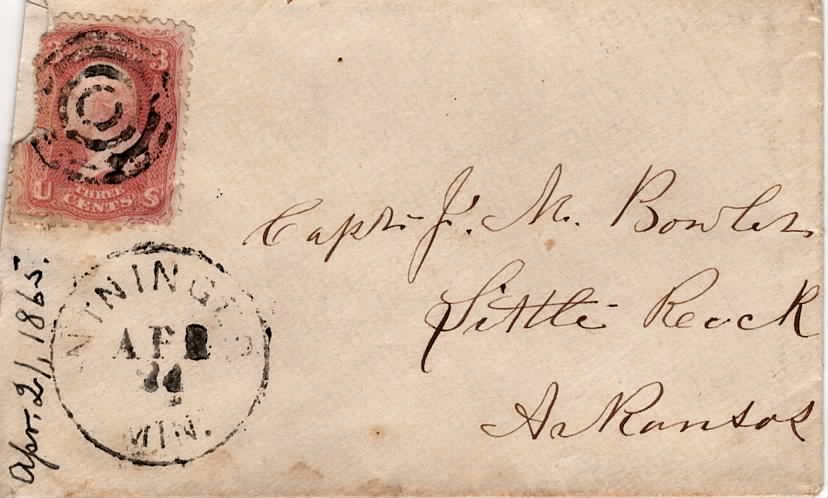 3
U THREE CENTS S
Capt. J. M. Bowler
Little Rock
Arkansas
NININGER
APR
MIN.
Apr. 21, 1865.